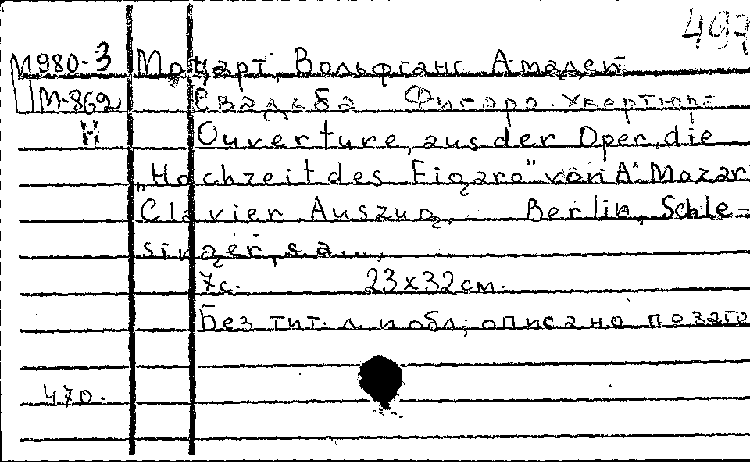 497
М980-3 Моцарт, Вольфганг Амадей
М-869 Свадьба Фигаро. Увертюра
Н Ouverture, aus der Oper, die
„Hochzeit des Figaro" von A. Mozar
Clavier Auszug. Berlin, Schle-
singer, s.a.
7с. 23х32см.
Без тит. л. и обл., описано по заго
470.